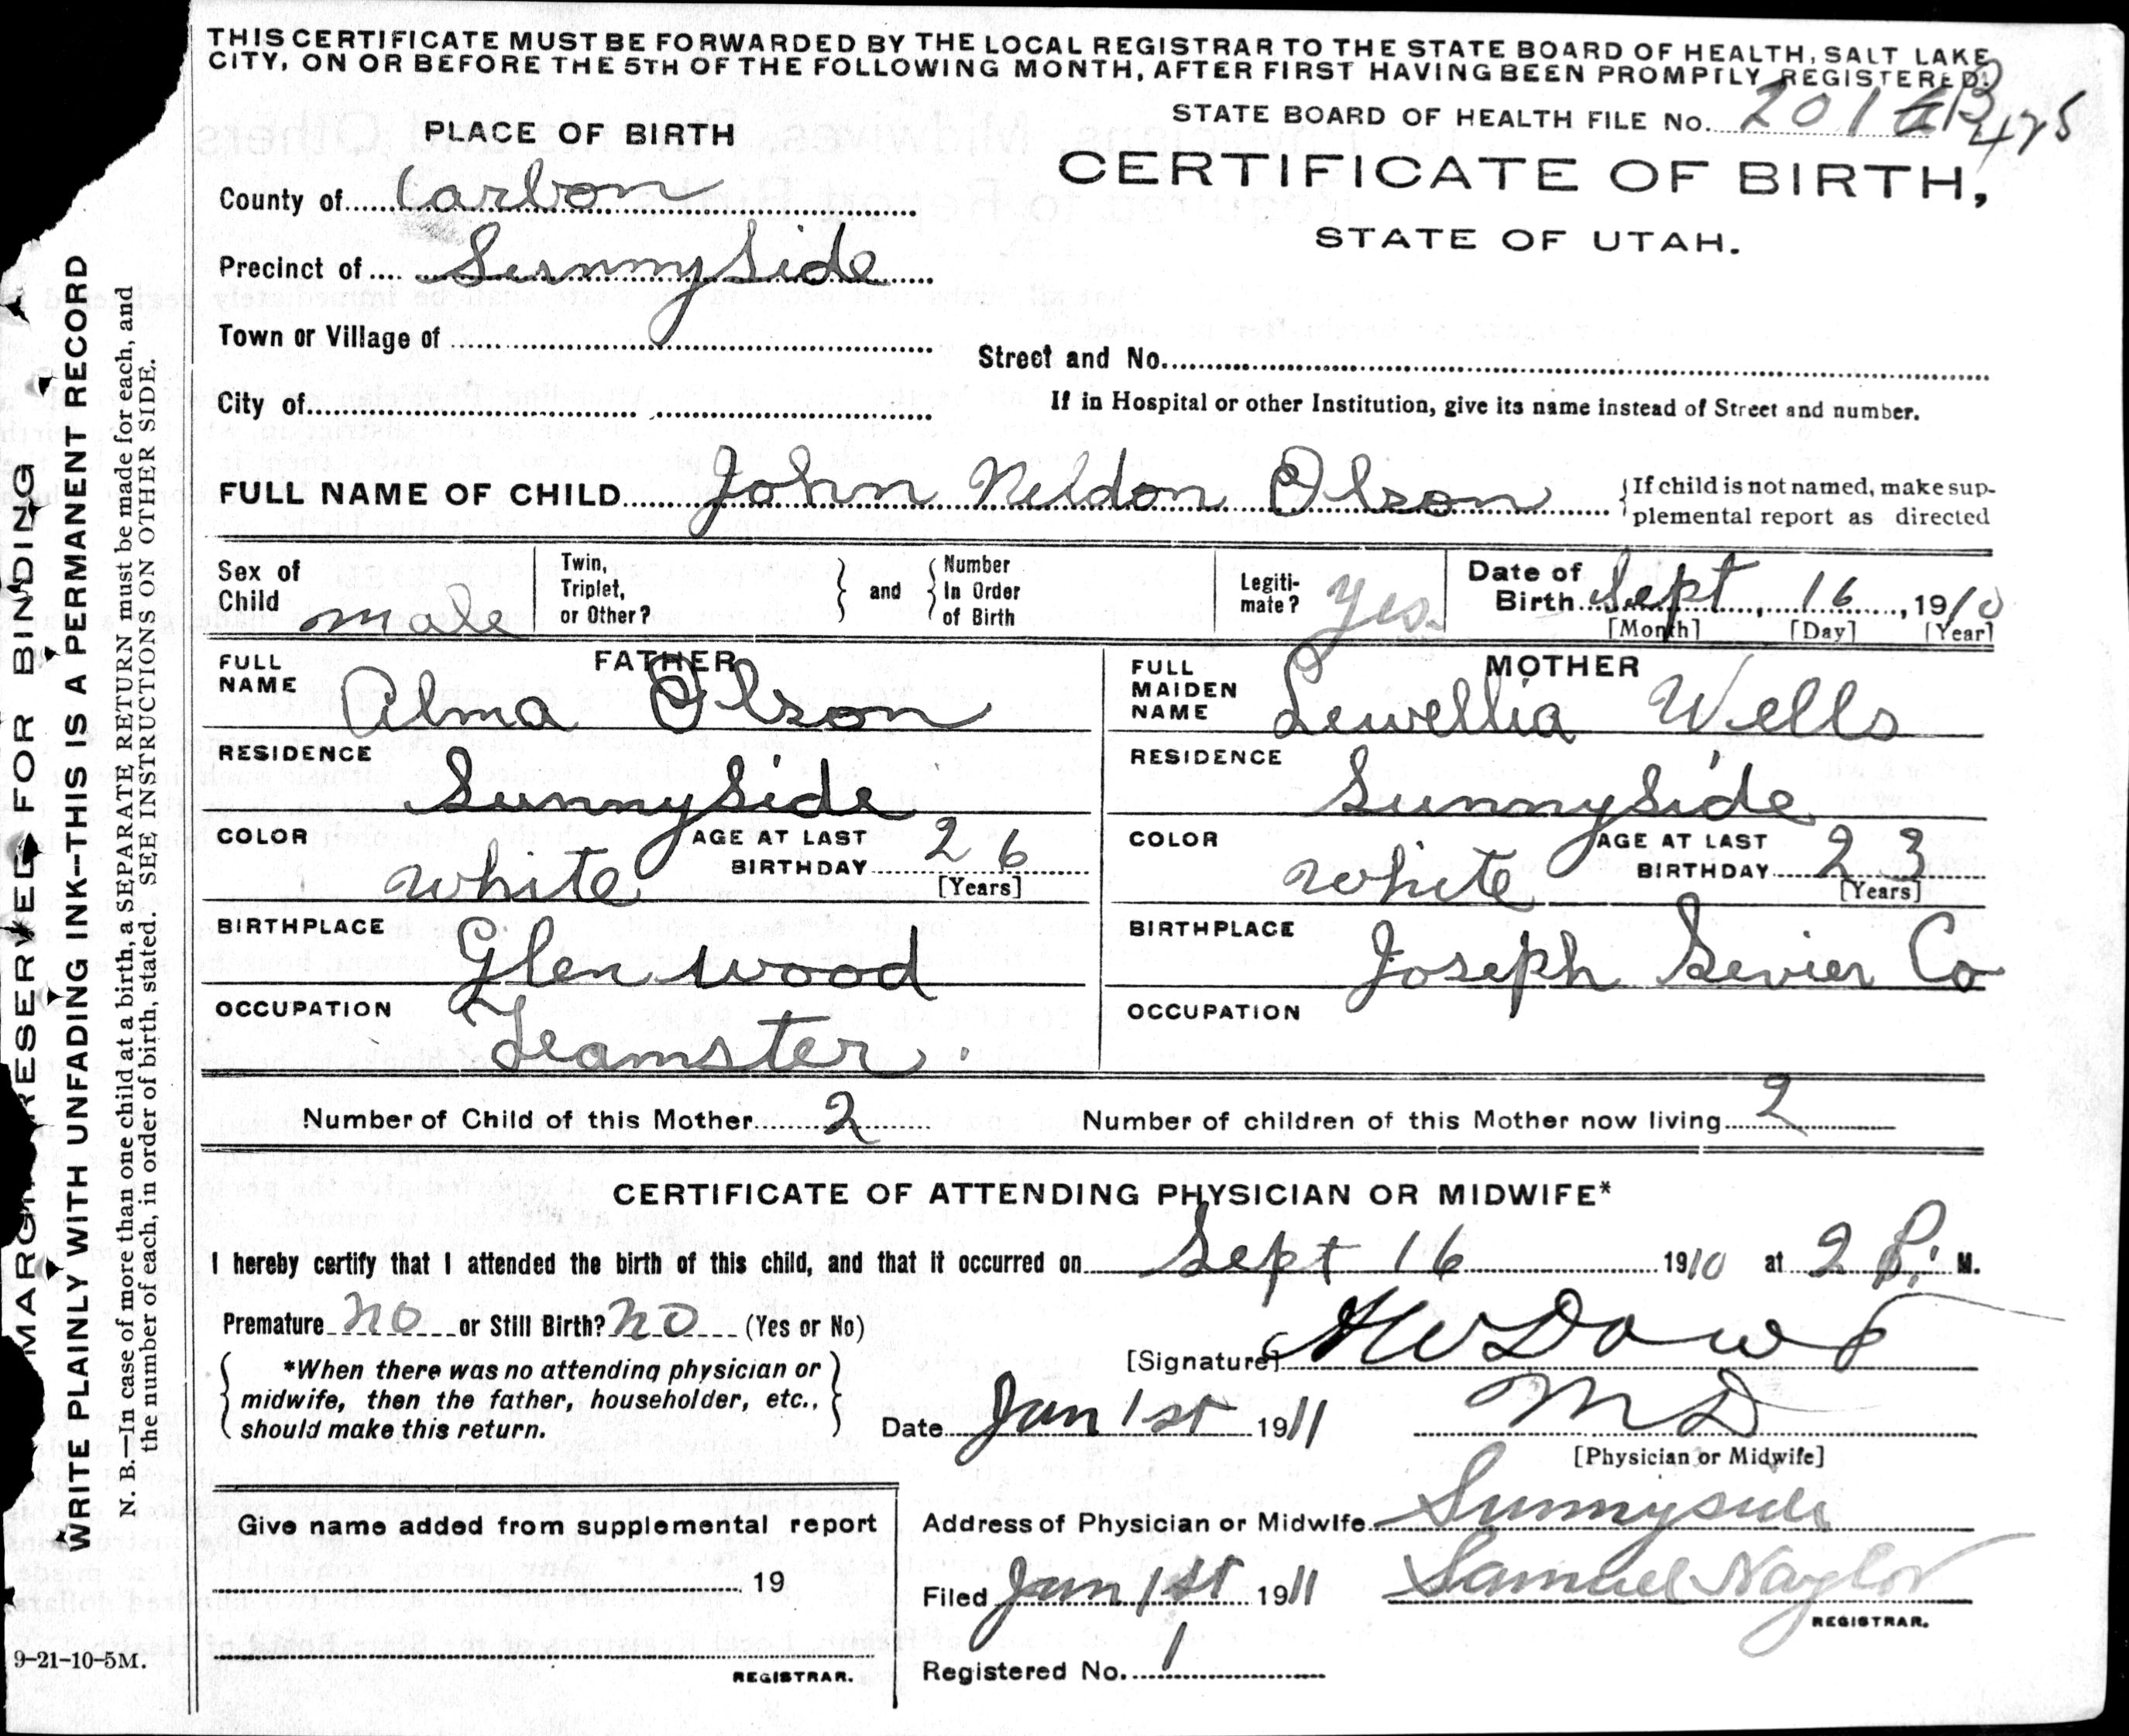 THIS CERTIFICATE MUST BE FORWARDED BY THE LOCAL REGISTRAR TO THE STATE BOARD OF HEALTH, SALT LAKE
CITY, ON OR BEFORE THE 5TH OF THE FOLLOWING MONTH, AFTER FIRST HAVING BEEN PROMPTLY REGISTERED.
STATE BOARD OF HEALTH FILE No. 201
PLACE OF BIRTH
CERTIFICATE OF BIRTH,
STATE OF UTAH.
County of Carbon
Precinct of Sunnyside
Town or Village of
Street and No.
City of
If in Hospital or other Institution, give its name instead of Street and number.
FULL NAME OF CHILD John Neldon Olson
If child is not named, make sup-
plemental report as directed
Sex of Child male
Twin, Triplet, or Other?
and
Number In Order of Birth
Legiti-mate? Yes.
Date of Birth Sept, 16, 1910
[Month] [Day] [Year]
FATHER
FULL NAME Alma Olson
RESIDENCE Sunnyside
COLOR white AGE AT LAST BIRTHDAY 26
[Years]
BIRTHPLACE Glenwood
OCCUPATION Teamster.
MOTHER
FULL MAIDEN NAME Lewellia Wells
RESIDENCE Sunnyside
COLOR white AGE AT LAST BIRTHDAY 23
[Years]
BIRTHPLACE Joseph Sevier Co
OCCUPATION
Number of Child of this Mother 2 Number of children of this Mother now living 2
CERTIFICATE OF ATTENDING PHYSICIAN OR MIDWIFE*
I hereby certify that I attended the birth of this child, and that it occurred on Sept 16 1910 at 2 P. M.
Premature no or Still Birth? no (Yes or No)
*When there was no attending physician or
midwife, then the father, householder, etc.,
should make this return.
[Signature] Dowd
Date Jan 1st 1911
M D
[Physician or Midwife]
Give name added from supplemental report
19
REGISTRAR.
Address of Physician or Midwife Sunnyside
Filed Jan 1st 1911 Samuel Naylor
REGISTRAR.
Registered No. 1
9-21-10-5M.
MARGIN RESERVED FOR BINDING
WRITE PLAINLY WITH UNFADING INK--THIS IS A PERMANENT RECORD
N. B.—In case of more than one child at a birth, a SEPARATE RETURN must be made for each, and
the number of each, in order of birth, stated. SEE INSTRUCTIONS ON OTHER SIDE.